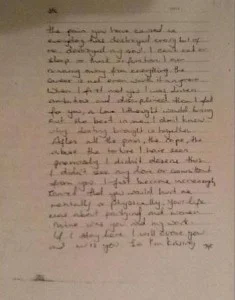 the pain you have caused is
everyday has destroyed every bit of
me, destroyed my soul. I cant eat or
sleep or think or function. I am
running away from everything the
career is not even worth anymore
When I first met you I was driven
ambitious and disciplined then I fell
for you, a love I thought would bring
out the best in me. I don't know
why destiny brought us together
After all the pain, the rape, the
abuse the torture I have seen
previously I didn't deserve this
I didn't see any love or commitment
from you. I just become increasingly
scared that you would hurt me
mentally or physically. Your life
was about partying and women
mine was you and my work.
If I stay here I will crave you
and miss you So I'm leaving